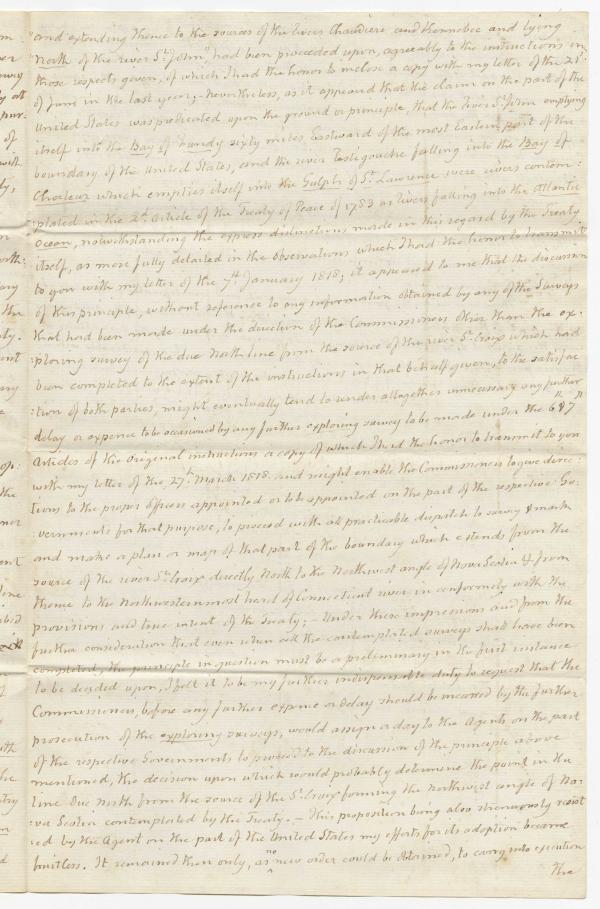 "and extending thence to the sources of the rivers Chaudiere and Kennebec and lying
North of the river St. John", had been proceeded upon, agreeably to the instructions in
those respects given, of which I had the honor to inclose a copy with my letter of the 21st
of June in the last year; - nevertheless, as it appeared that the claim on the part of the
United States was predicated upon the ground or principle, that the river St. John emptying
itself into the Bay of Fundy sixty miles Eastward of the most Eastern part of the
boundary of the United States, and the river Restigouche falling into the Bay of
Chaleur which empties itself into the Gulph of St. Lawrence were rivers contem:
:plated in the 2d. Article of the Treaty of Peace of 1783 as rivers falling into the Atlantic
Ocean, notwithstanding the express distinctions made in this regard by the Treaty
itself, as more fully detailed in the observations which I had the honor to transmit
to you with my letter of the 7th January 1818; it appeared to me that the discussion
of this principle, without reference to any information obtained by any of the Surveys
that had been made under the direction of the Commissioners other than the ex:
:ploring survey of the due North line from the source of the river St. Croix which had
been completed to the extent of the instructions in that behalf given, to the satisfac
:tion of both parties, might eventually tend to render alltogether unnecessary any further
delay or expence to be occasioned by any further exploring survey to be made under the 6th & 7th
Articles of the original instructions a copy of which I had the honor to transmit to you
with my letter of the 27th. March 1818. and might enable the Commissioners to give direc:
tions to the proper officers appointed or to be appointed on the part of the respective Go:
:vernments for that purpose, to proceed with all practicable dispatch to survey & mark
and make a plan or map of that part of the boundary which extends from the
source of the river St. Croix directly North to the Northwest angle of Nova Scotia & from
thence to the Northwesternmost head of Connecticut river in conformity with the
provisions and true intent of the Treaty; - Under these impressions and from the
further consideration that even when all the contemplated surveys shall have been
completed, the principle in question must be a preliminary in the first instance
to be decided upon, I felt it to be my further indispensable duty to request that the
Commissioners, before any further expence or delay should be incurred by the further
prosecution of the exploring surveys, would assign a day to the Agents on the part
of the respective Governments to proceed to the discussion of the principle above
mentioned, the decision upon which would probably determine the point in the
line due North from the source of the St. Croix forming the Northwest angle of No:
:va Scotia contemplated by the Treaty. - This proposition being also strenuously resist
:ed by the Agent on the part of the United States my efforts for its adoption became
fruitless. It remained then only, as no new order could be obtained, to carry into execution
The